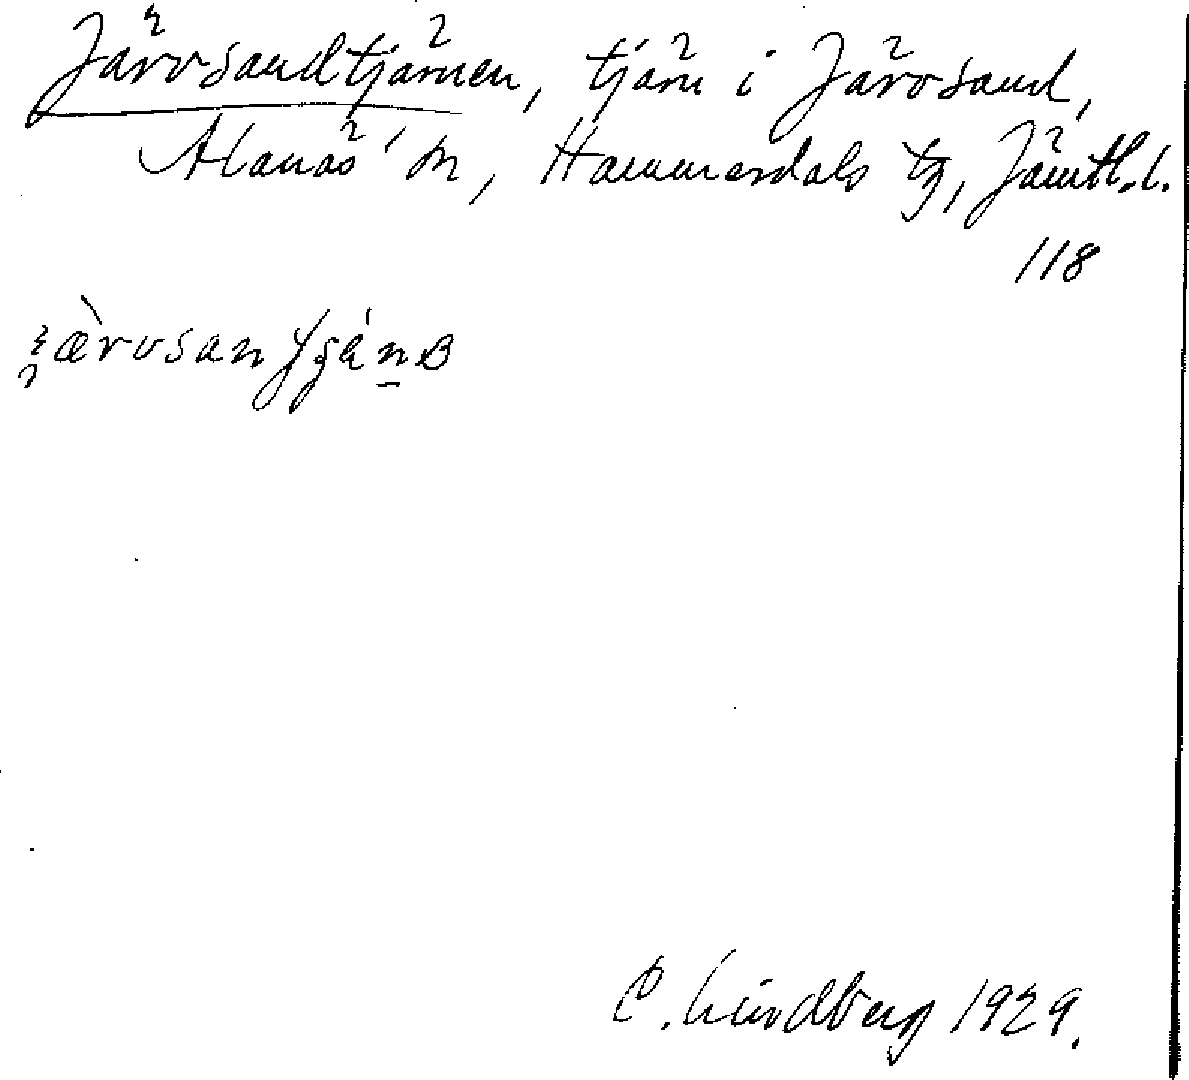 Järvsandtjärnen, tjärn i Järvsand,
Alanäs sn, Hammerdals tg, Jämtl. l.
118
C. Lindberg 1929.